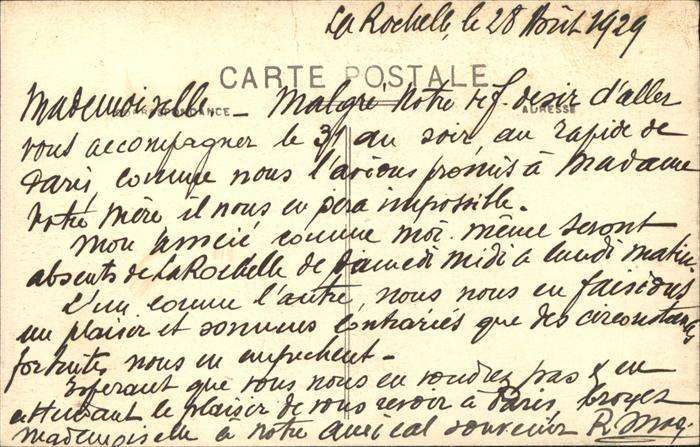 La Rochelle, le 28 Août 1929
CARTE POSTALE
CORRESPONDANCE
ADRESSE
Mademoiselle - Malgré notre vif désir d'aller
vous accompagner le 31 au soir, au rapide de
Paris, comme nous l'avions promis à Madame
votre mère il nous en sera impossible.
Mon associé comme moi-même seront
absents de La Rochelle de samedi midi à lundi matin
L'un comme l'autre, nous nous en faisions
un plaisir et sommes contrariés que des circonstances
fortuites nous en empêchent -
Espérant que vous nous en voudrez pas & en
attendant le plaisir de vous revoir à Paris, croyez
mademoiselle à notre amical souvenir R.